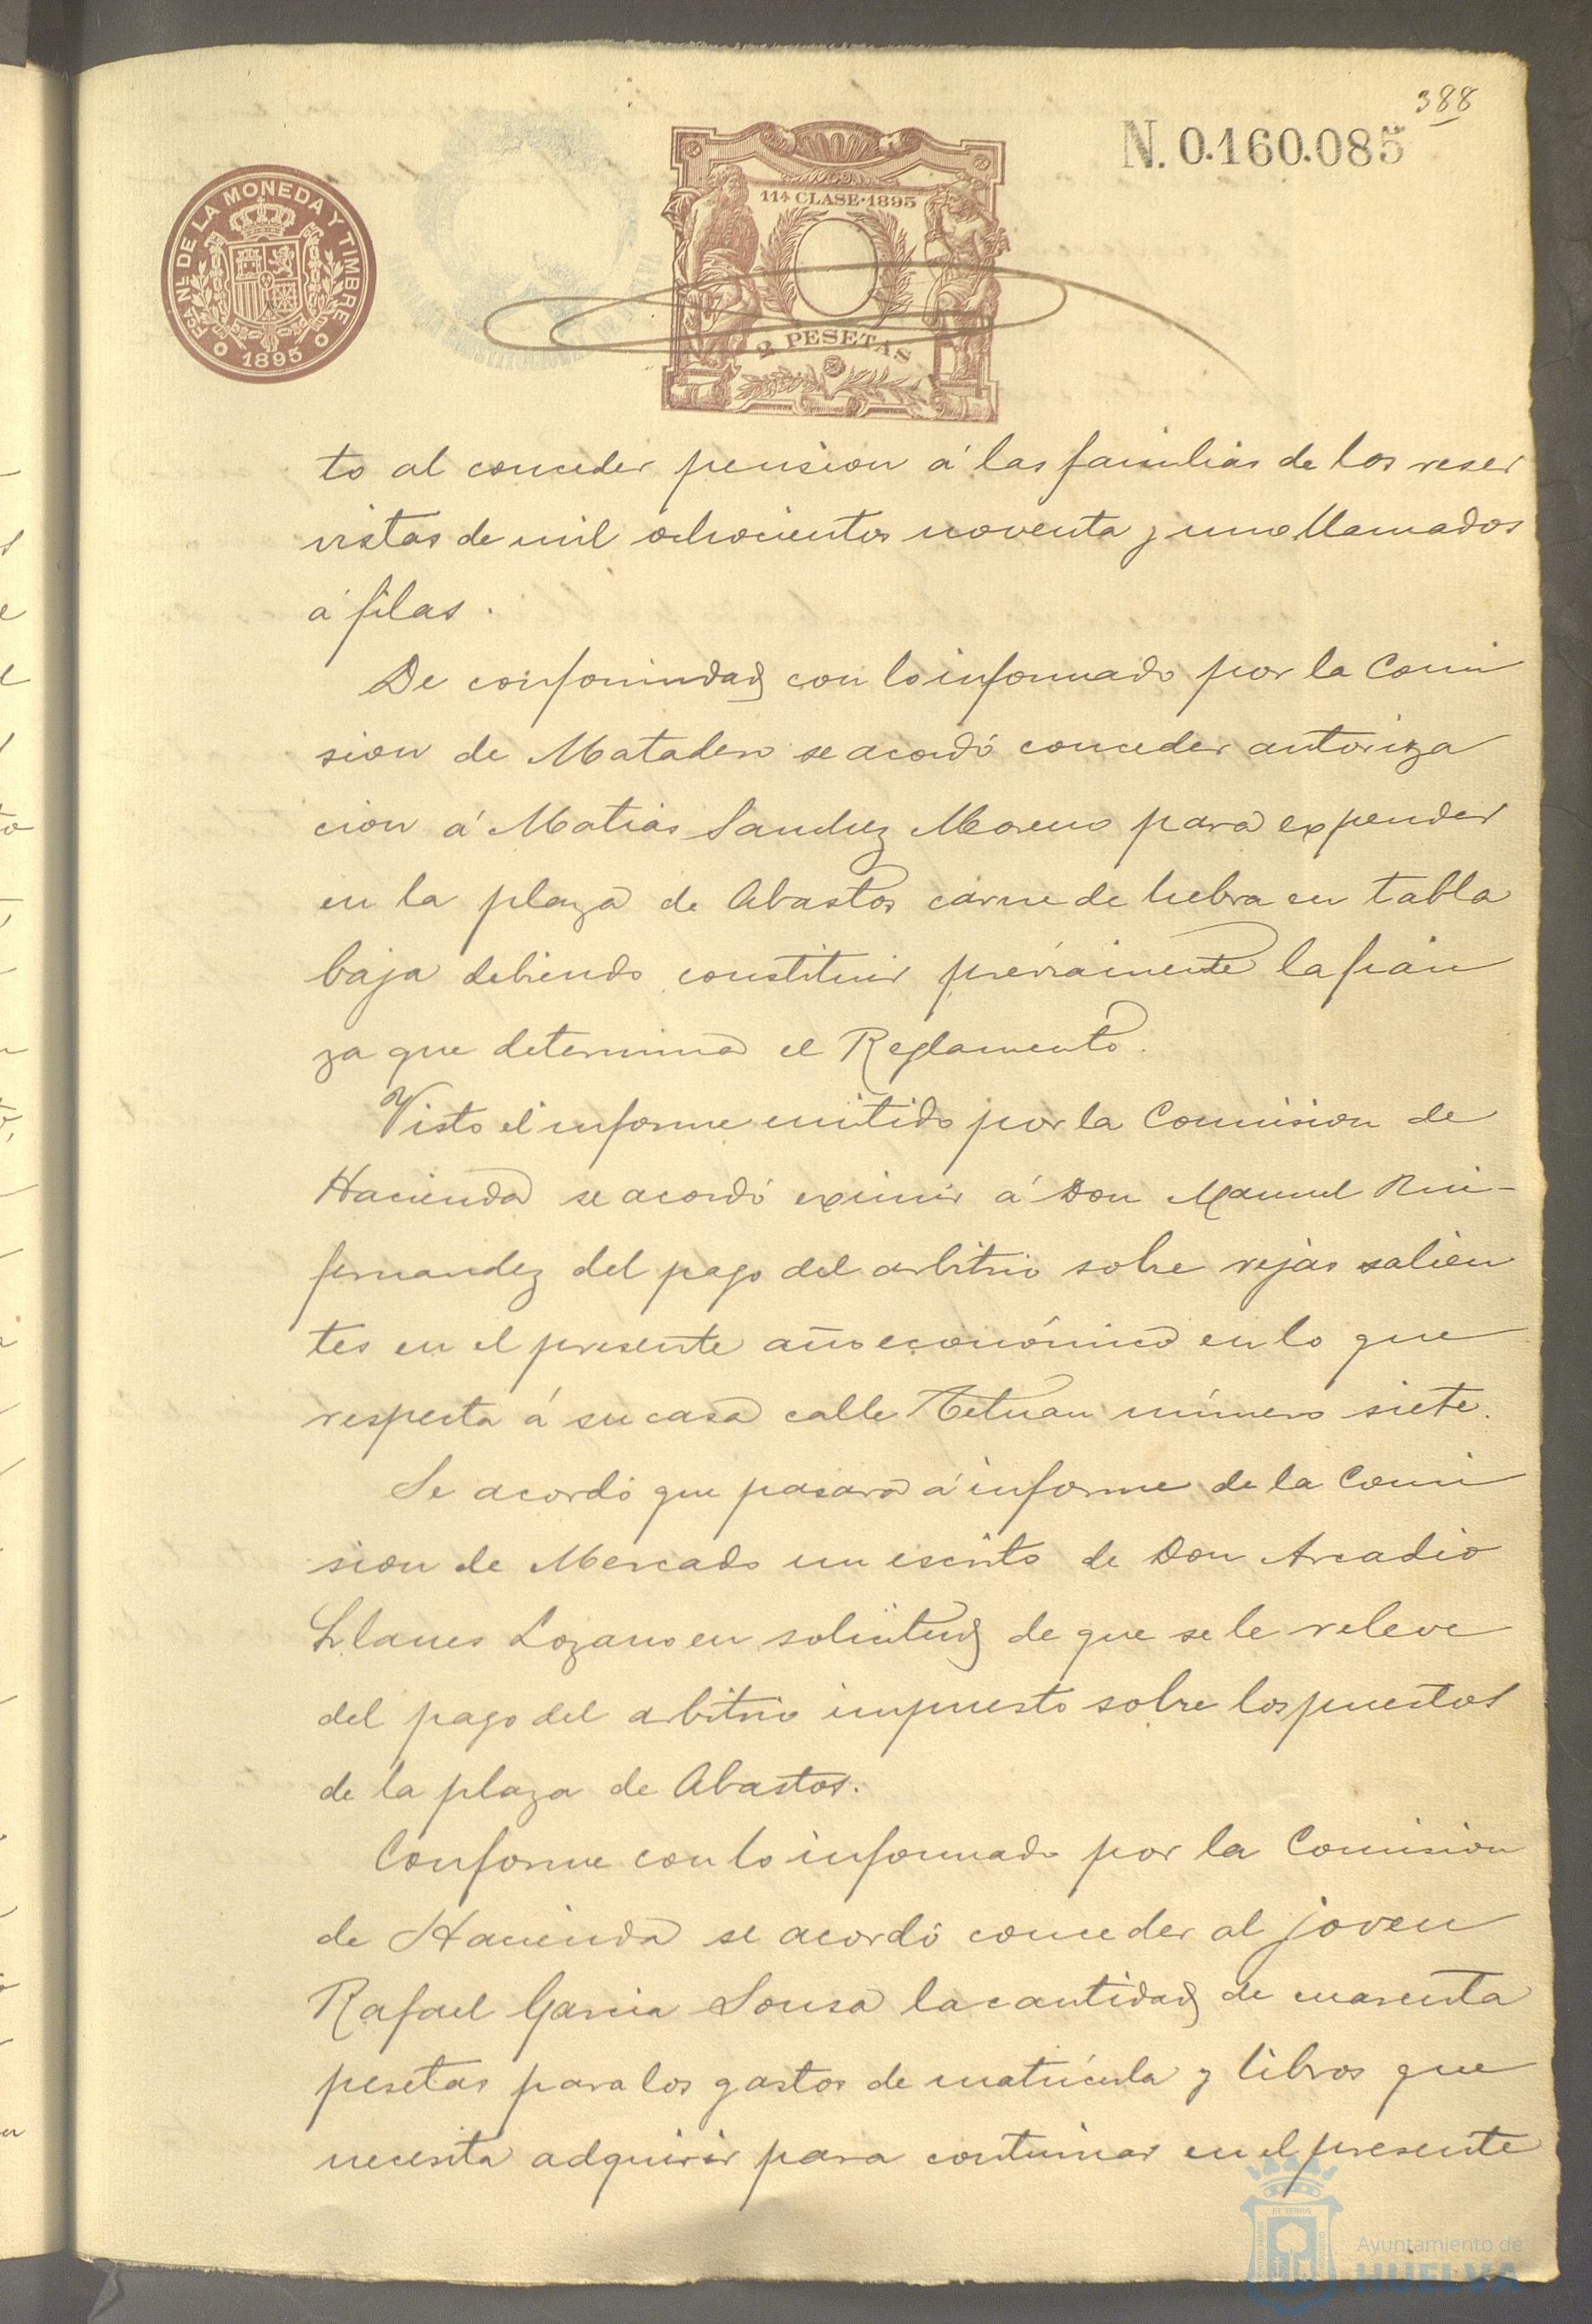 388
N. 0.160.085
FCA NL DE LA MONEDA Y TIMBRE
1895
11ª CLASE·1895
2 PESETAS
to al conceder pension á las familias de los reser
vistas de mil ochocientos noventa y uno llamados
á filas.
De conformidad con lo informado por la Comi
sion de Matadero se acordó conceder autoriza
cion á Matias Sanchez Moreno para expender
en la plaza de Abastos carne de hebra en tabla
baja debiendo constituir préviamente la fian
za que determina el Reglamento.
Visto el informe emitido por la Comision de
Hacienda se acordó eximir á Don Manuel Rui-
fernandez del pago del arbitrio sobre rejas salien
tes en el presente año económico en lo que
respecta á su casa calle Tetuan número siete.
Se acordó que pasara á informe de la Comi
sion de Mercado un escrito de Don Arcadio
Llanes Lozano en solicitud de que se le releve
del pago del arbitrio impuesto sobre los puestos
de la plaza de Abastos.
Conforme con lo informado por la Comision
de Hacienda se acordó conceder al joven
Rafael Garcia Sousa la cantidad de cuarenta
pesetas para los gastos de matrícula y libros que
necesita adquirir para continuar en el presente
Ayuntamiento de
HUELVA